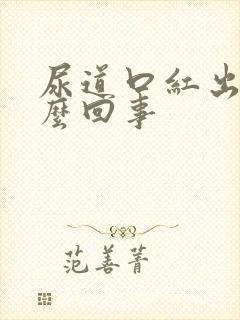 尿道口紅出
麼回事
范善菁